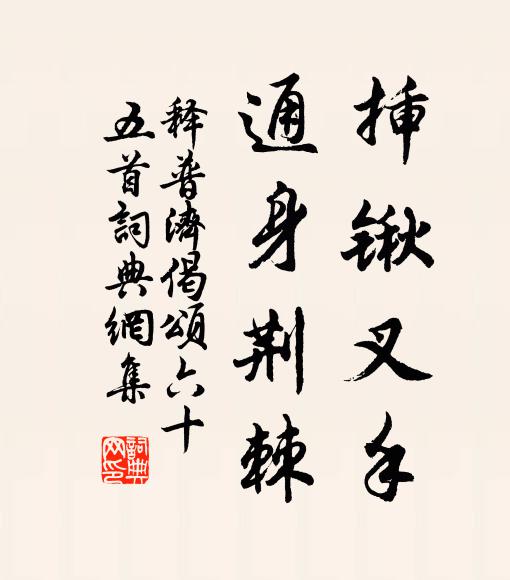 插锹叉手
通身荆棘
释普濟偈頌六十
五首詞典網集
詞典网印